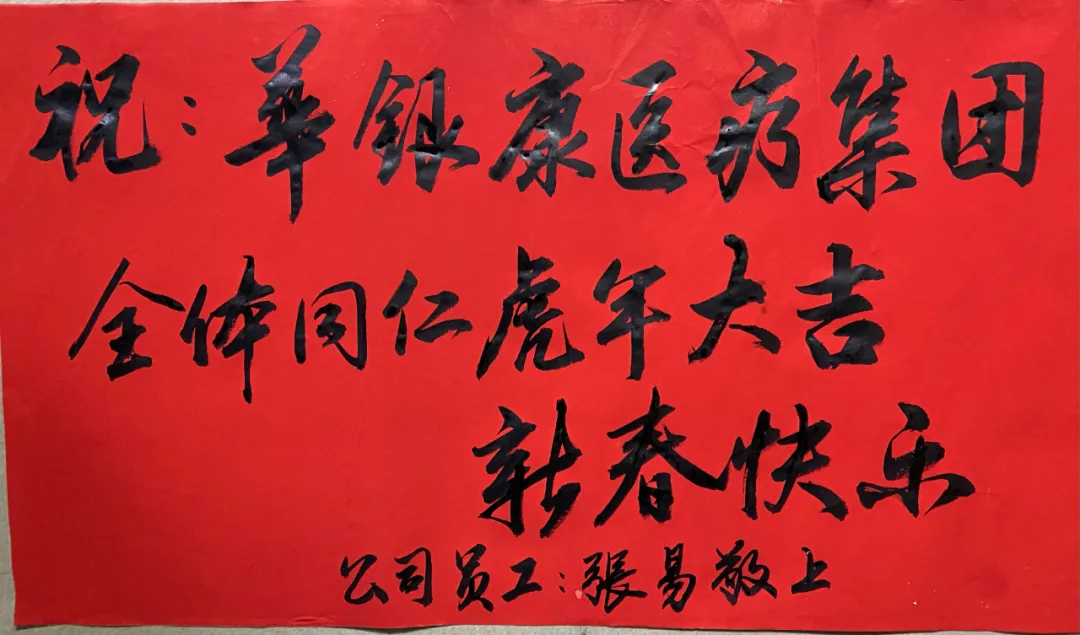 祝：華銀康医疗集团
全体同仁虎年大吉
新春快乐
公司员工：張易敬上